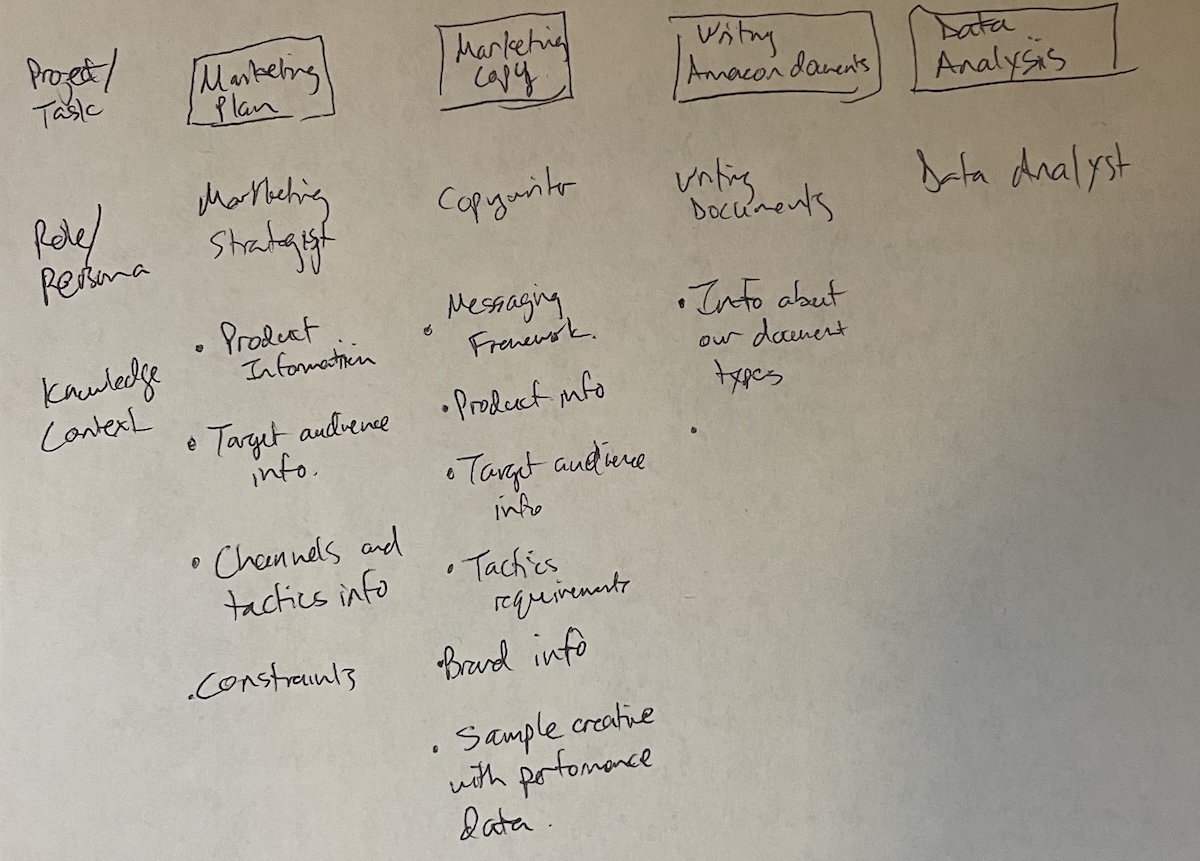 Project/
Task
Marketing
Plan
Marketing
Copy
Writing
Amazon documents
Data
Analysis
Role/
Persona
Marketing
Strategist
Copywriter
Writing
Documents
Data Analyst
Knowledge
Context
• Product
Information
• Target audience
info.
• Channels and
tactics info
• Constraints
• Messaging
Framework.
• Product info
• Target audience
info
• Tactics
requirements
• Brand info
• Sample creative
with performance
data.
• Info about
our document
types
•